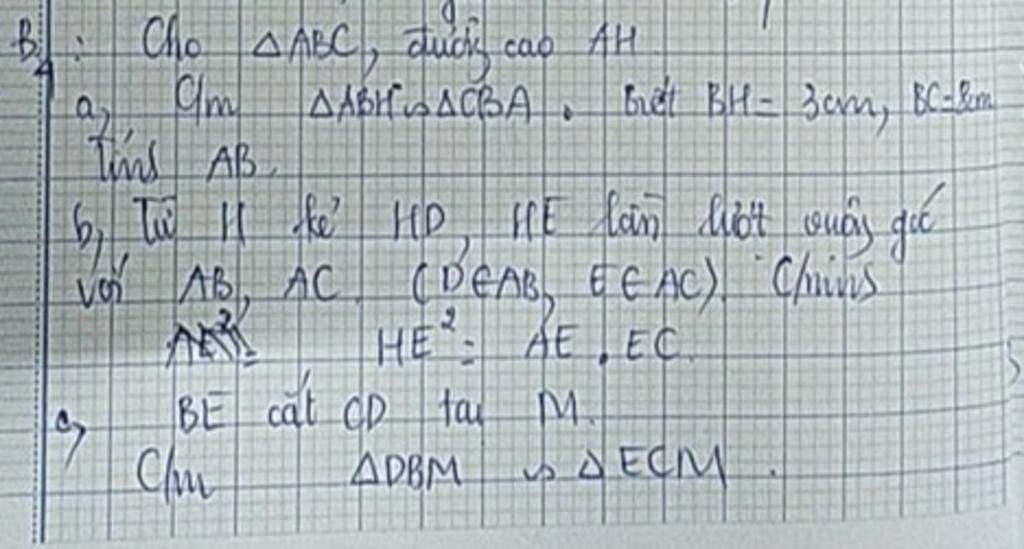 B4: Cho △ABC, đường cao AH
a, Cm △ABH ∽ △CBA. Biết BH = 3cm, BC = 8cm
Tính AB.
b, Từ H kẻ HD, HE lần lượt vuông góc
với AB, AC (D∈AB, E∈AC). C/minh
HE² = AE . EC.
c, BE cắt CD tại M.
C/m △DBM ∽ △ECM.